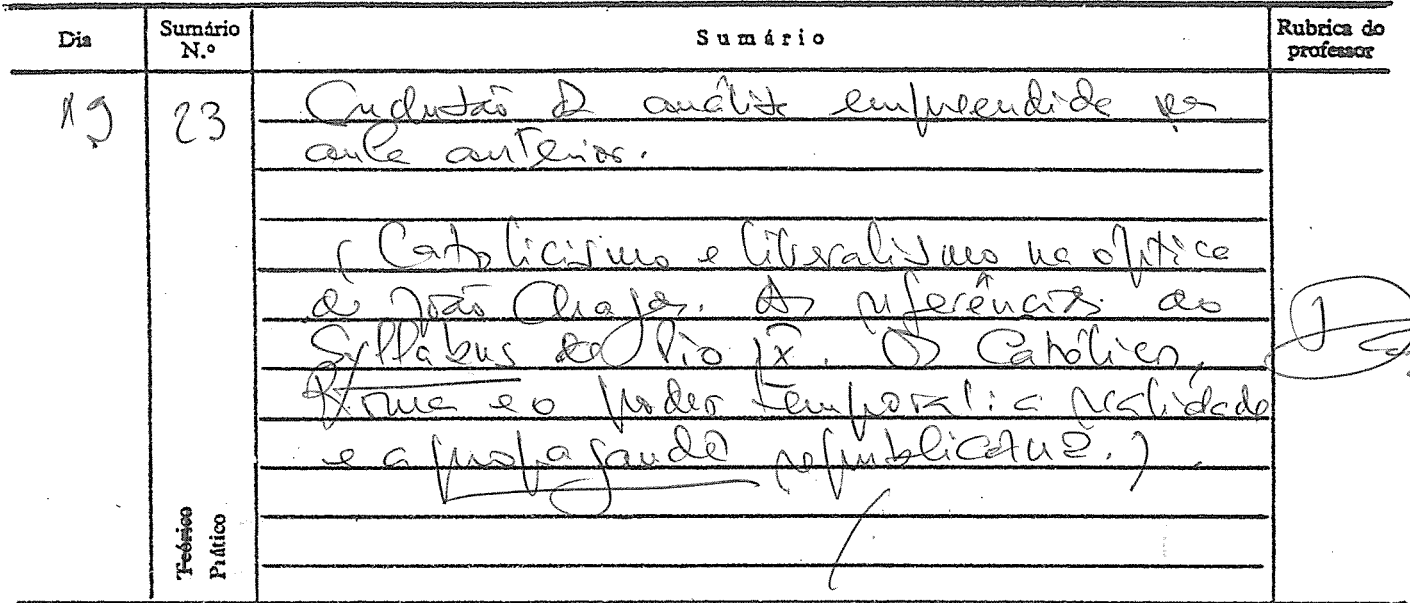 Dia Sumário N.º Sumário Rubrica do professor
19 23 Conclusão da análise empreendida na
aula anterior.
(Catolicismo e liberalismo na óptica
de João Chagas. As referências ao
Syllabus de Pio IX. Os Católicos,
Roma e o poder temporal: a realidade
e a propaganda republicana.).
Teórico
Prático